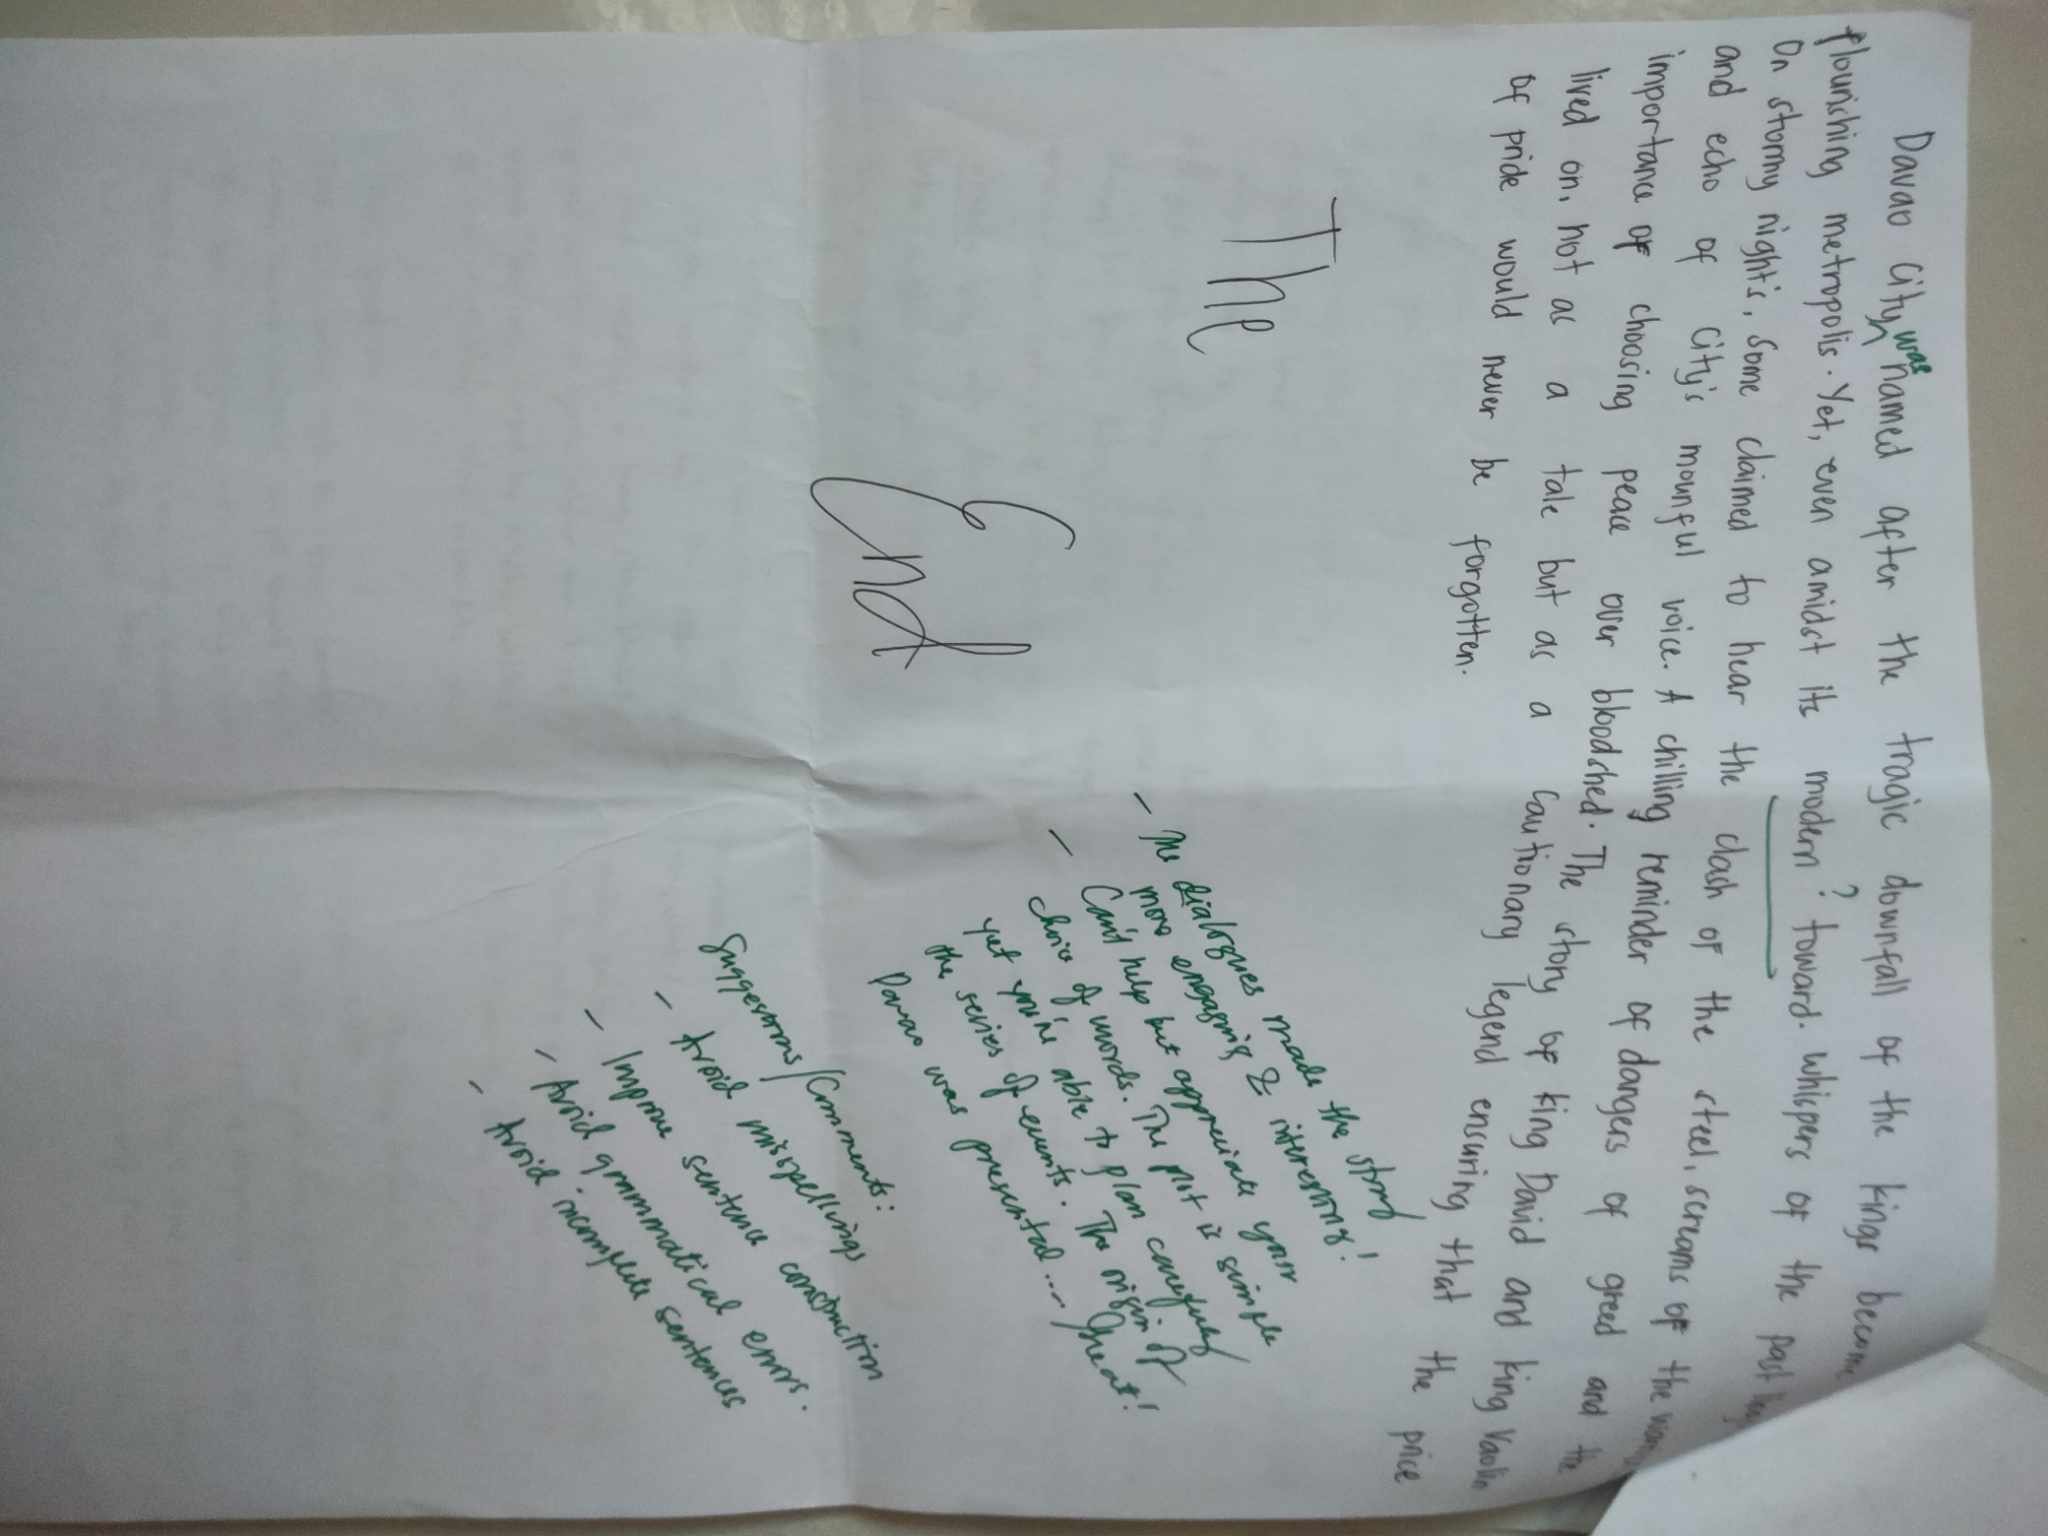 Davao City was named after the tragic downfall of the kings become
flourishing metropolis. Yet, even amidst its modern ? toward. Whispers of the past
On stormy night's, Some claimed to hear the clash of the steel, screams of the
and echo of City's mounful voice. A chilling reminder of dangers of greed and the
importance of choosing peace over bloodshed. The story of King David and King Vaolin
lived on, not as a tale but as a Cautionary legend ensuring that the price
of pride would never be forgotten.
The
End
- The dialogues made the story
more engaging & interesting!
- Can't help but appreciate your
choice of words. The plot is simple
yet you're able to plan carefully
the series of events. The origin of
Davao was presented .... Great!
Suggestions/Comments:
- Avoid misspellings
- Improve sentence construction
- Avoid grammatical errors.
- Avoid incomplete sentences